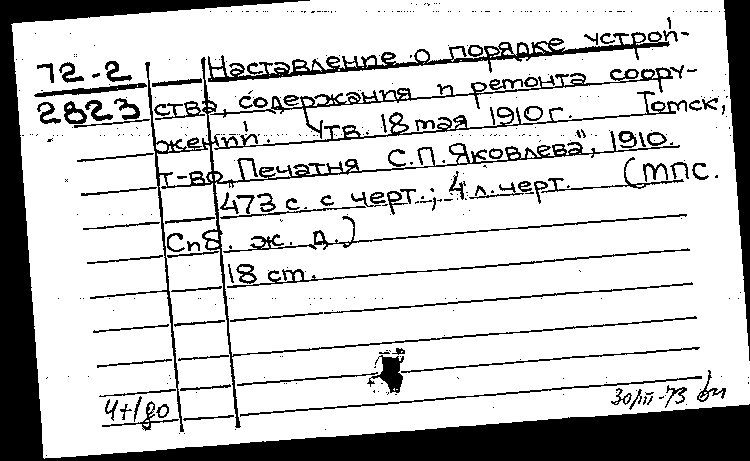 72-2 Наставление о порядке устрой-
2823 ства, содержания и ремонта соору-
жений. Утв. 18 мая 1910 г. Томск,
т-во „Печатня С.П.Яковлева", 1910.
473 с. с черт.; 4 л. черт. (МПС.
Спб. ж. д.)
18 см.
30/III-73